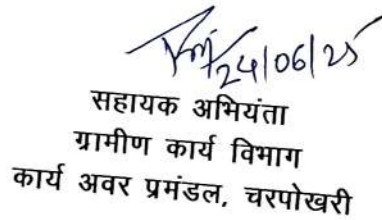 24/06/25
सहायक अभियंता
ग्रामीण कार्य विभाग
कार्य अवर प्रमंडल, चरपोखरी